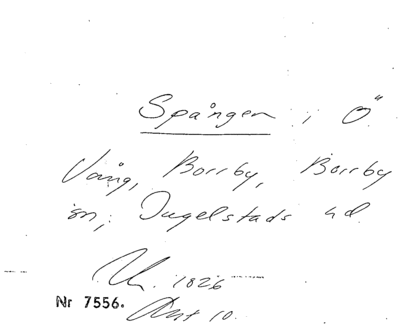 Spången i Ö
Vång, Borrby, Borrby
sn, Ingelstads hd
1826
Nr 7556.
Akt 10.